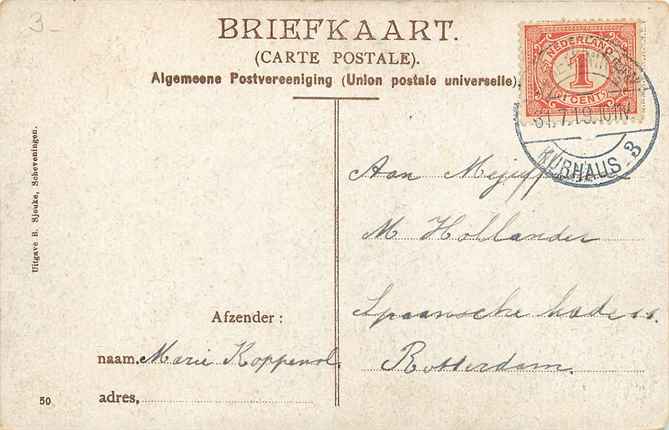 3-
BRIEFKAART.
(CARTE POSTALE).
Algemeene Postvereeniging (Union postale universelle).
NEDERLAND
1
CENT
KURHAUS 3
Aan Mejuff
M Hollander
Spaansche kade 11.
Rotterdam.
Afzender:
naam, Marie Koppenol.
adres,
50
Uitgave B. Sjouke, Scheveningen.